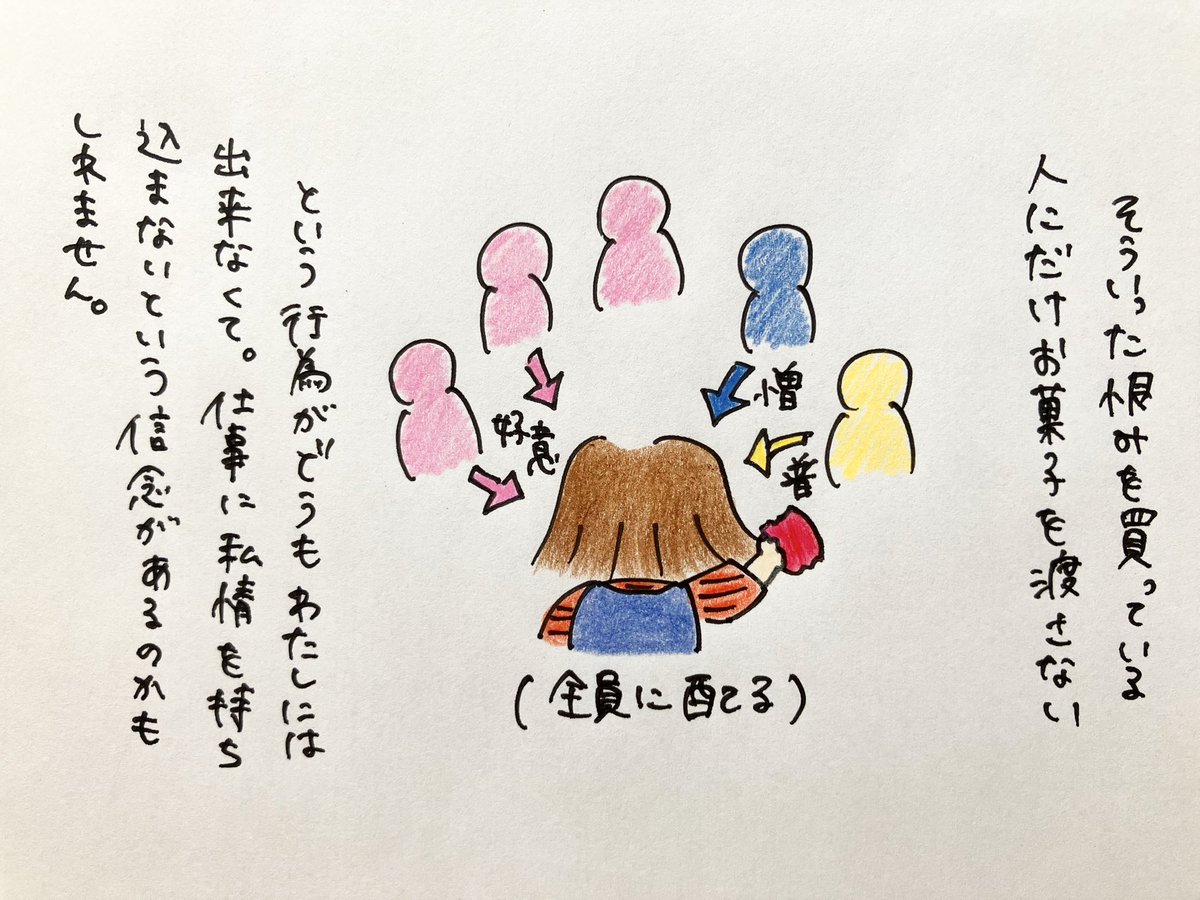 そういった恨みを買っている
人にだけお菓子を渡さない
好意
憎
普
(全員に配てる)
という行為がどうもわたしには
出来なくて。仕事に私情を持ち
込まないという信念があるのかも
しれません。